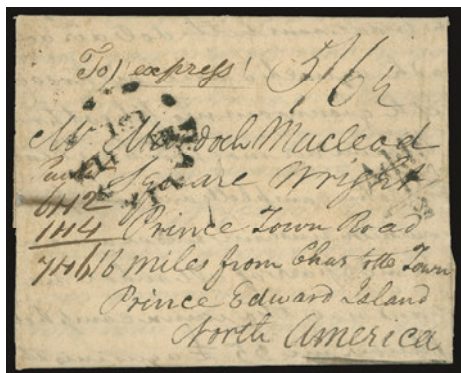 To 'express'
3/6½
Mr. Murdoch Macleod
Square Wright
Prince Town Road
16 miles from Charlotte Town
Prince Edward Island
North America